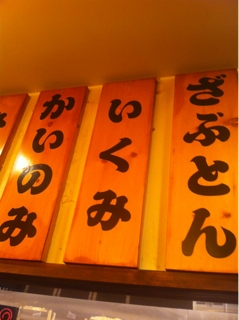 ざぶとん
いくみ
かいのみ